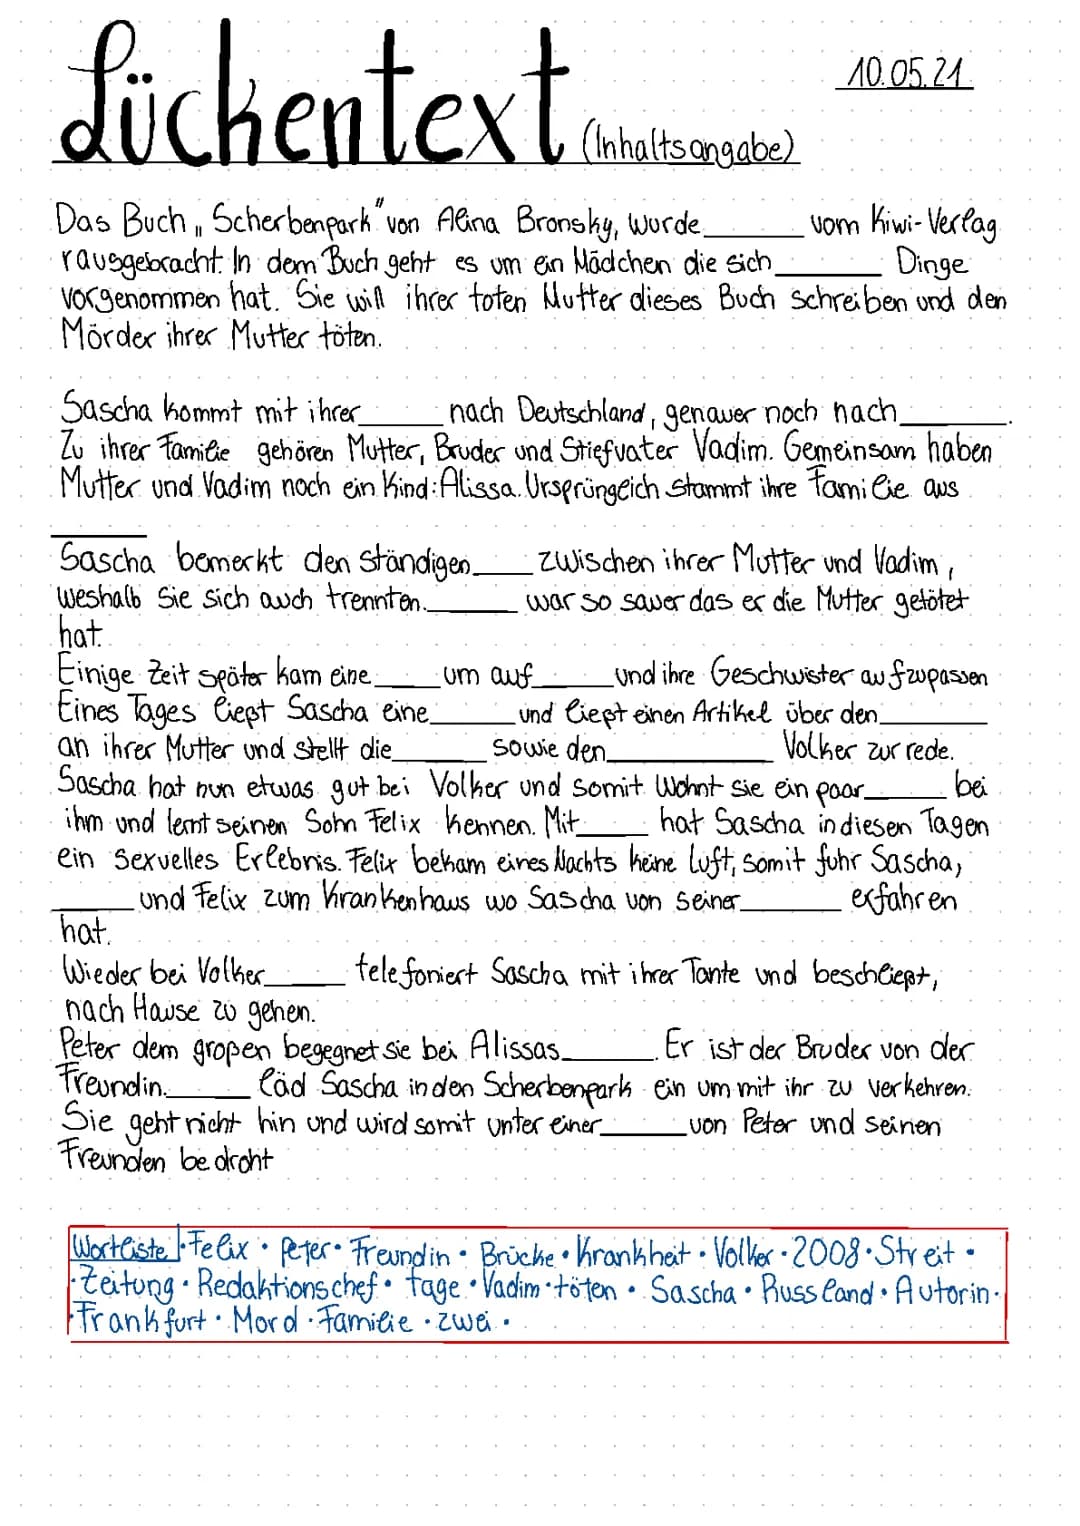 Lückentext (Inhaltsangabe) 10.05.21
Das Buch „Scherbenpark" von Alina Bronsky, wurde ______ vom Kiwi-Verlag
rausgebracht. In dem Buch geht es um ein Mädchen die sich ______ Dinge
vorgenommen hat. Sie will ihrer toten Mutter dieses Buch schreiben und den
Mörder ihrer Mutter töten.
Sascha kommt mit ihrer ______ nach Deutschland, genauer noch nach ______.
Zu ihrer Familie gehören Mutter, Bruder und Stiefvater Vadim. Gemeinsam haben
Mutter und Vadim noch ein Kind: Alissa. Ursprünglich stammt ihre Familie aus
______
Sascha bemerkt den ständigen ______ zwischen ihrer Mutter und Vadim,
weshalb Sie sich auch trennten. ______ war so sauer das er die Mutter getötet
hat.
Einige Zeit später kam eine ______ um auf ______ und ihre Geschwister aufzupassen
Eines Tages ließt Sascha eine ______ und ließt einen Artikel über den ______
an ihrer Mutter und stellt die ______ sowie den ______ Volker zur rede.
Sascha hat nun etwas gut bei Volker und somit Wohnt sie ein paar ______ bei
ihm und lernt seinen Sohn Felix kennen. Mit ______ hat Sascha in diesen Tagen
ein sexuelles Erlebnis. Felix bekam eines Nachts keine Luft, somit fuhr Sascha,
______ und Felix zum Krankenhaus wo Sascha von seiner ______ erfahren
hat.
Wieder bei Volker ______ telefoniert Sascha mit ihrer Tante und beschließt,
nach Hause zu gehen.
Peter dem großen begegnet sie bei Alissas ______. Er ist der Bruder von der
Freundin. ______ läd Sascha in den Scherbenpark ein um mit ihr zu verkehren.
Sie geht nicht hin und wird somit unter einer ______ von Peter und seinen
Freunden bedroht
Wortliste · Felix · Peter · Freundin · Brücke · Krankheit · Volker · 2008 · Streit ·
· Zeitung · Redaktionschef · tage · Vadim · töten · Sascha · Russland · Autorin ·
· Frankfurt · Mord · Familie · zwei ·